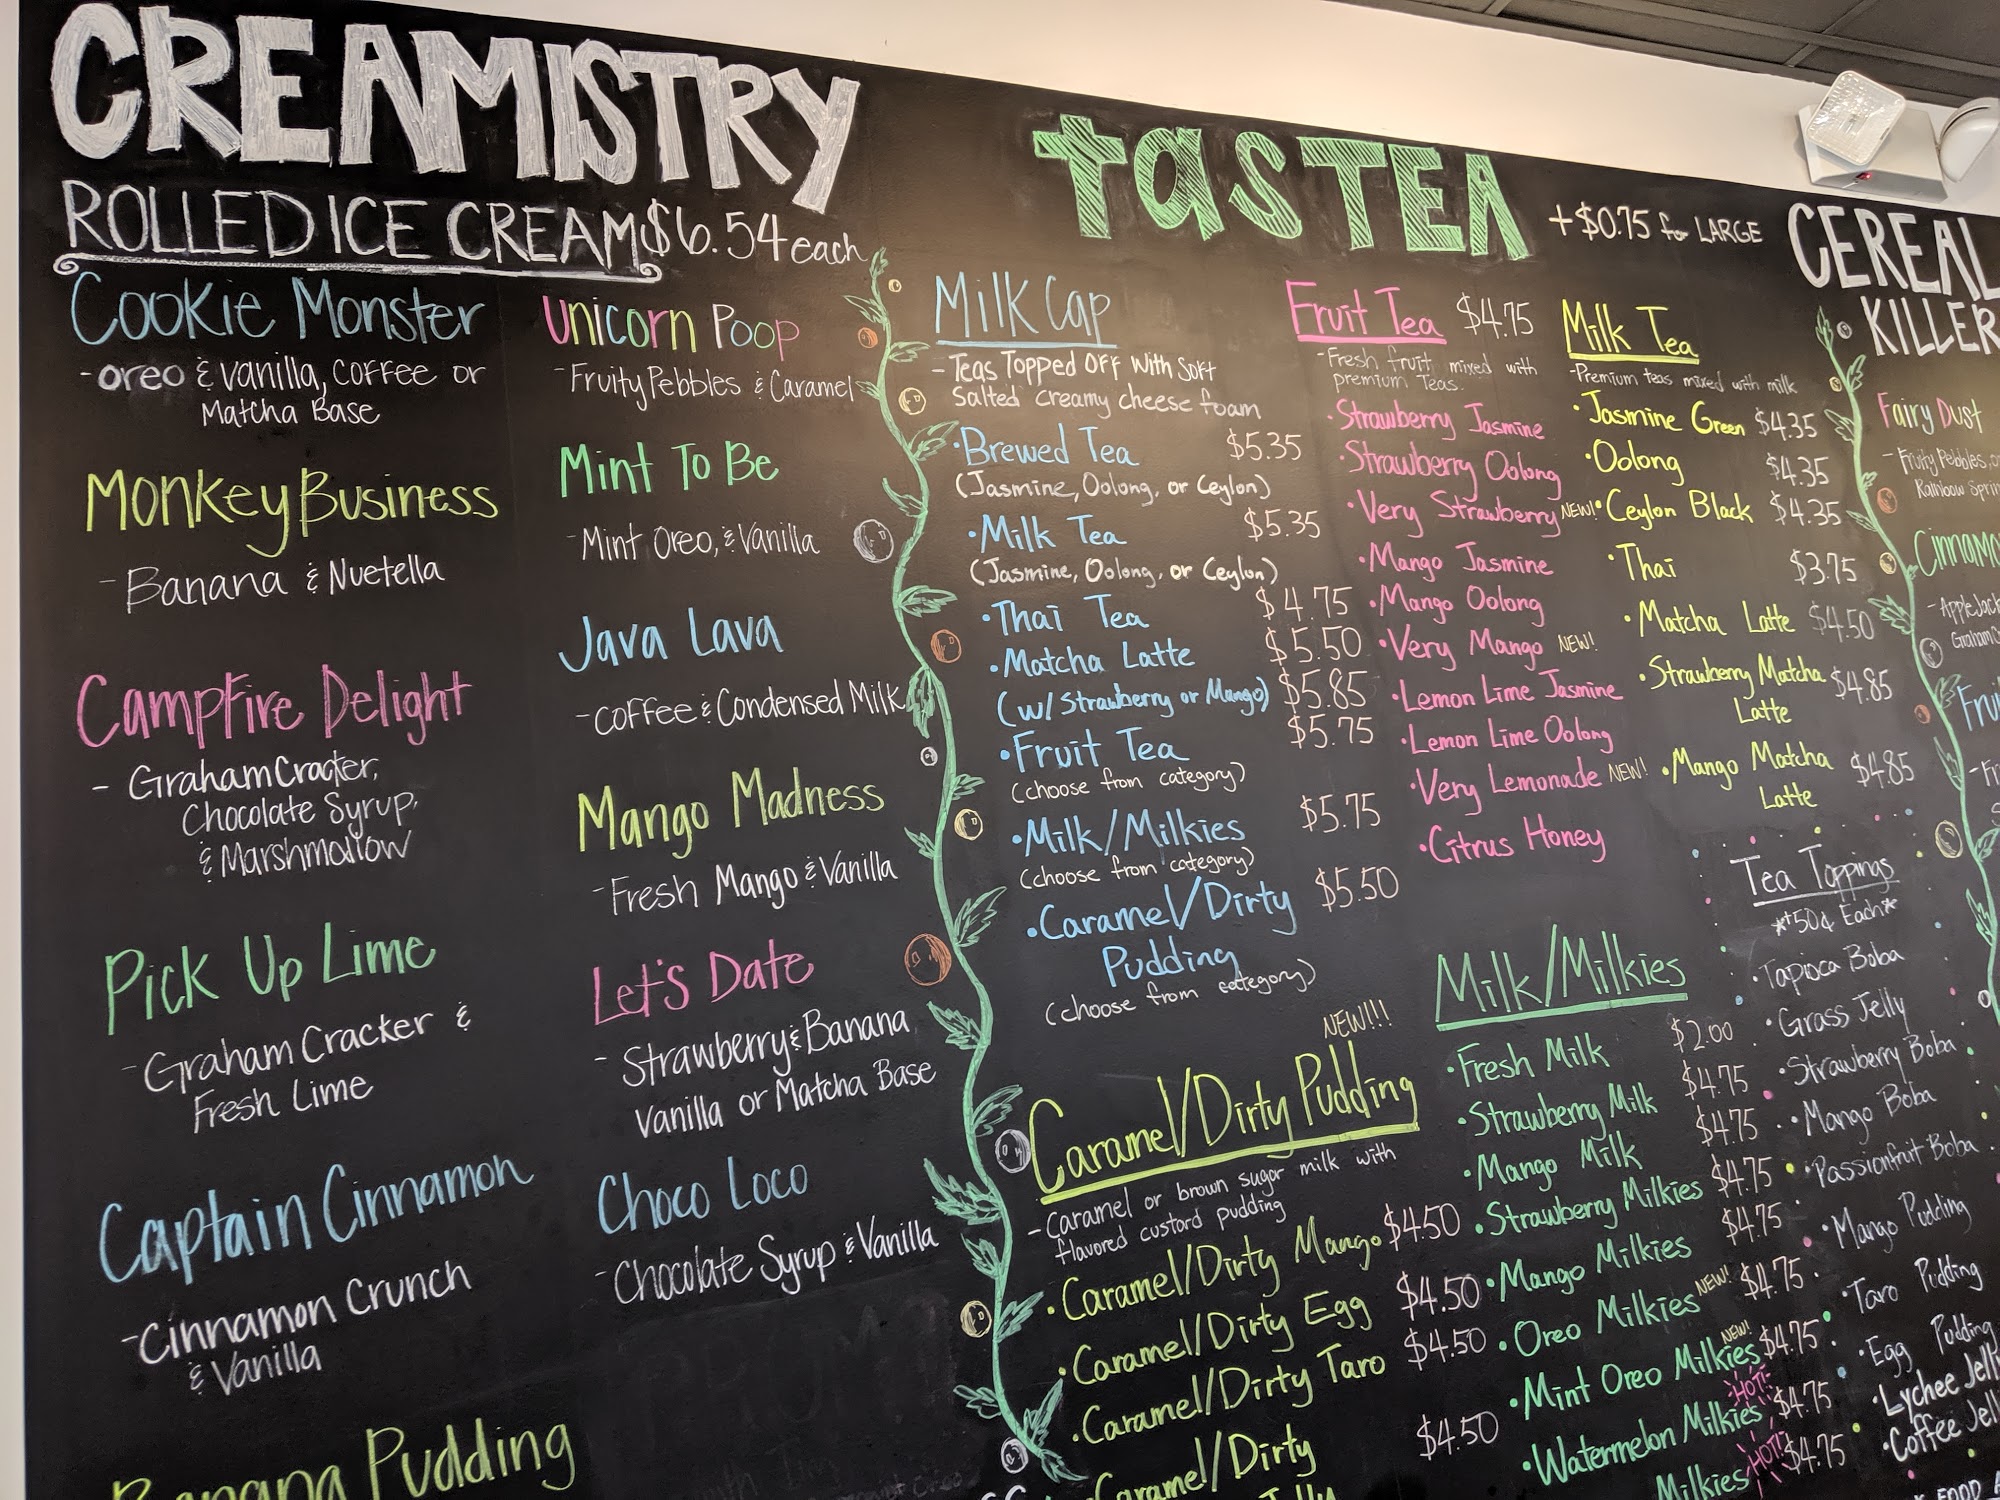 CREAMISTRY
ROLLED ICE CREAM $6.54 each
Cookie Monster
- oreo & vanilla, coffee or
Matcha Base
Monkey Business
- Banana & Nuetella
Campfire Delight
- Graham Cracker,
Chocolate Syrup,
& Marshmallow
Pick Up Lime
- Graham Cracker &
Fresh Lime
Captain Cinnamon
- Cinnamon Crunch
& Vanilla
Banana Pudding
Unicorn Poop
- Fruity Pebbles & Caramel
Mint To Be
- Mint Oreo, & Vanilla
Java Lava
- Coffee & Condensed Milk
Mango Madness
- Fresh Mango & Vanilla
Let's Date
- Strawberry & Banana
Vanilla or Matcha Base
Choco Loco
- Chocolate Syrup & Vanilla
tasTEA
+$0.75 for LARGE
Milk Cap
- Teas Topped Off With Soft
Salted creamy cheese foam
• Brewed Tea $5.35
(Jasmine, Oolong, or Ceylon)
• Milk Tea $5.35
(Jasmine, Oolong, or Ceylon)
• Thai Tea $4.75
• Matcha Latte $5.50
(w/ Strawberry or Mango) $5.85
• Fruit Tea $5.75
(choose from category)
• Milk/Milkies $5.75
(choose from category)
• Caramel/Dirty $5.50
Pudding
(choose from category)
NEW!!!
Caramel/Dirty Pudding
- Caramel or brown sugar milk with
flavored custard pudding
• Caramel/Dirty Mango $4.50
• Caramel/Dirty Egg $4.50
• Caramel/Dirty Taro $4.50
Caramel/Dirty $4.50
Jelly
Fruit Tea $4.75
- Fresh fruit mixed with
premium Teas.
• Strawberry Jasmine
• Strawberry Oolong
• Very Strawberry NEW!
• Mango Jasmine
• Mango Oolong
• Very Mango NEW!
• Lemon Lime Jasmine
• Lemon Lime Oolong
• Very Lemonade NEW!
• Citrus Honey
Milk Tea
- Premium teas mixed with milk
• Jasmine Green $4.35
• Oolong $4.35
• Ceylon Black $4.35
• Thai $3.75
• Matcha Latte $4.50
• Strawberry Matcha $4.85
Latte
• Mango Matcha $4.85
Latte
Milk/Milkies
• Fresh Milk $2.00
• Strawberry Milk $4.75
• Mango Milk $4.75
• Strawberry Milkies $4.75
• Mango Milkies $4.75
• Oreo Milkies NEW! $4.75
• Mint Oreo Milkies NEW! $4.75
• Watermelon Milkies HOT! $4.75
Milkies HOT! $4.75
Tea Toppings
*+50¢ Each*
• Tapioca Boba
• Grass Jelly
• Strawberry Boba
• Mango Boba
• Passionfruit Boba
• Mango Pudding
• Taro Pudding
• Egg Pudding
• Lychee Jelly
• Coffee Jelly
CEREAL
KILLER
Fairy Dust
- Fruity Pebbles,
Rainbow